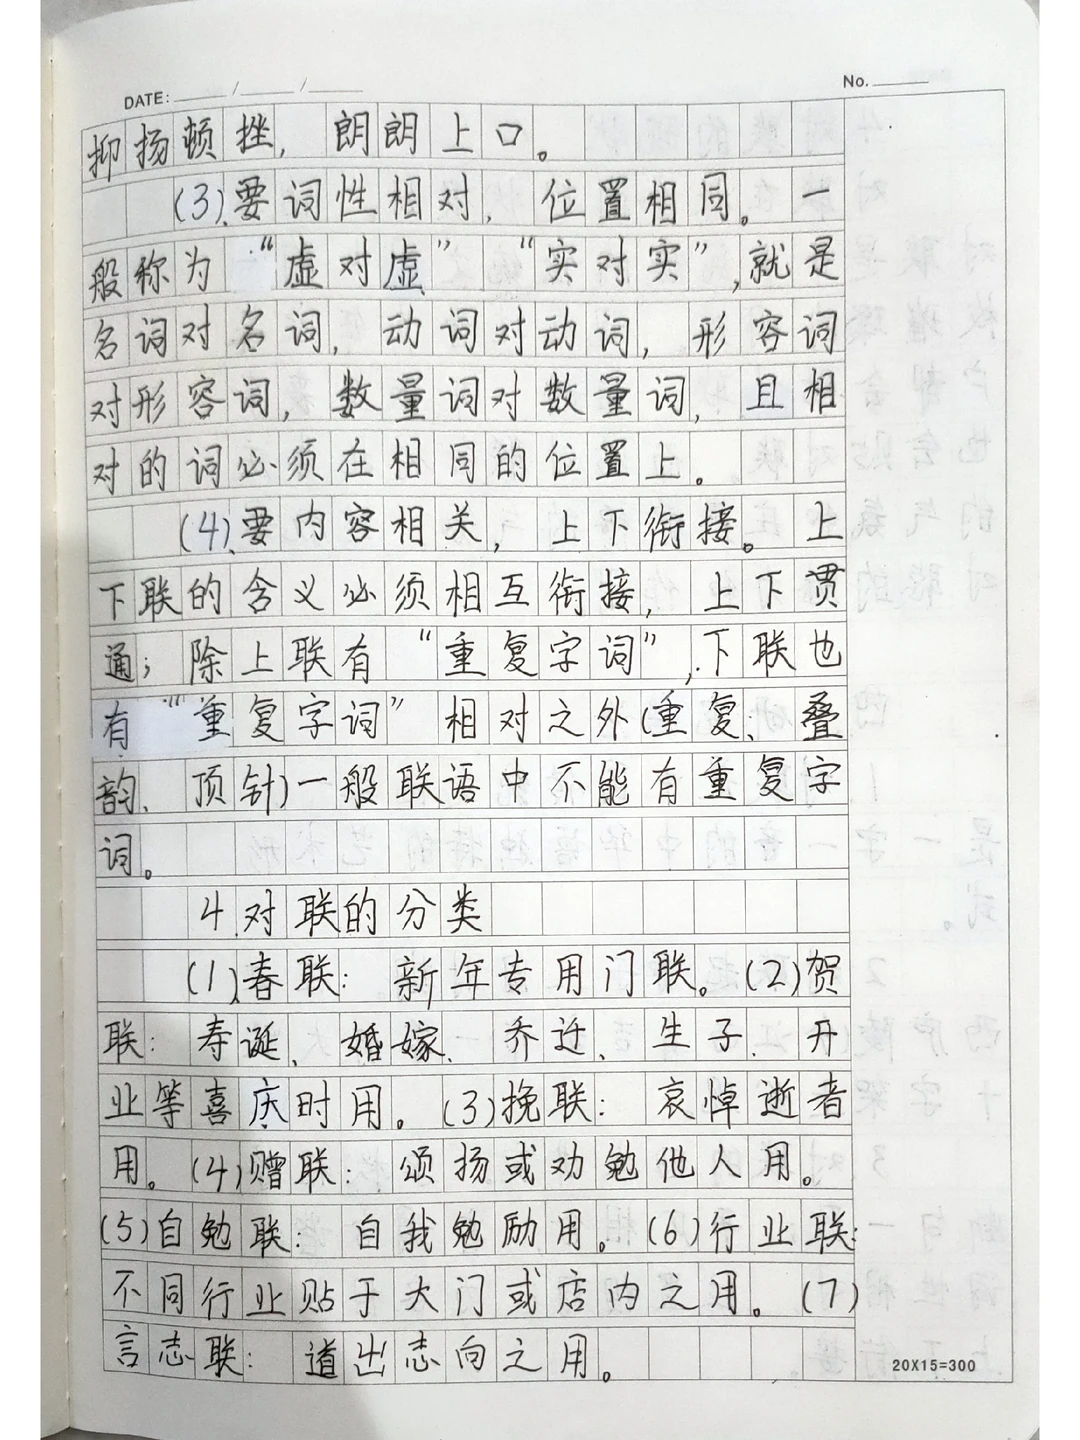 DATE: ____/____/____
No. ____
抑扬顿挫，朗朗上口。
(3)、要词性相对，位置相同。一
般称为“虚对虚”“实对实”,就是
名词对名词，动词对动词，形容词
对形容词，数量词对数量词，且相
对的词必须在相同的位置上。
(4)、要内容相关，上下衔接。上
下联的含义必须相互衔接，上下贯
通；除上联有“重复字词”,下联也
有“重复字词”相对之外(重复、叠
韵、顶针)一般联语中不能有重复字
词。
4.对联的分类
(1)、春联：新年专用门联。(2)贺
联：寿诞、婚嫁、乔迁、生子、开
业等喜庆时用。(3)挽联：哀悼逝者
用。(4)赠联：颂扬或劝勉他人用。
(5)自勉联：自我勉励用。(6)行业联：
不同行业贴于大门或店内之用。(7)
言志联：道出志向之用。
20X15=300